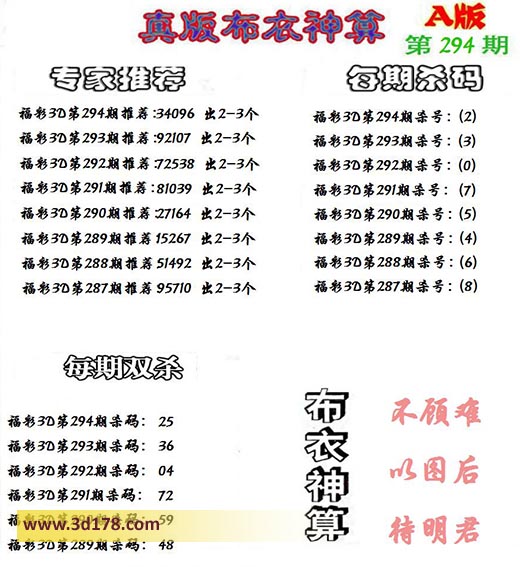 真版布衣神算
A版
第 294 期
专家推荐
福彩3D第294期推荐:34096 出2-3个
福彩3D第293期推荐:92107 出2-3个
福彩3D第292期推荐:72538 出2-3个
福彩3D第291期推荐:81039 出2-3个
福彩3D第290期推荐:27164 出2-3个
福彩3D第289期推荐 15267 出2-3个
福彩3D第288期推荐 51492 出2-3个
福彩3D第287期推荐 95710 出2-3个
每期杀码
福彩3D第294期杀号：(2)
福彩3D第293期杀号：(3)
福彩3D第292期杀号：(0)
福彩3D第291期杀号：(7)
福彩3D第290期杀号：(5)
福彩3D第289期杀号：(4)
福彩3D第288期杀号：(6)
福彩3D第287期杀号：(8)
每期双杀
福彩3D第294期杀码： 25
福彩3D第293期杀码： 36
福彩3D第292期杀码： 04
福彩3D第291期杀码： 72
59
福彩3D第289期杀码： 48
www.3d178.com
布衣神算
不顾难
以图后
待明君